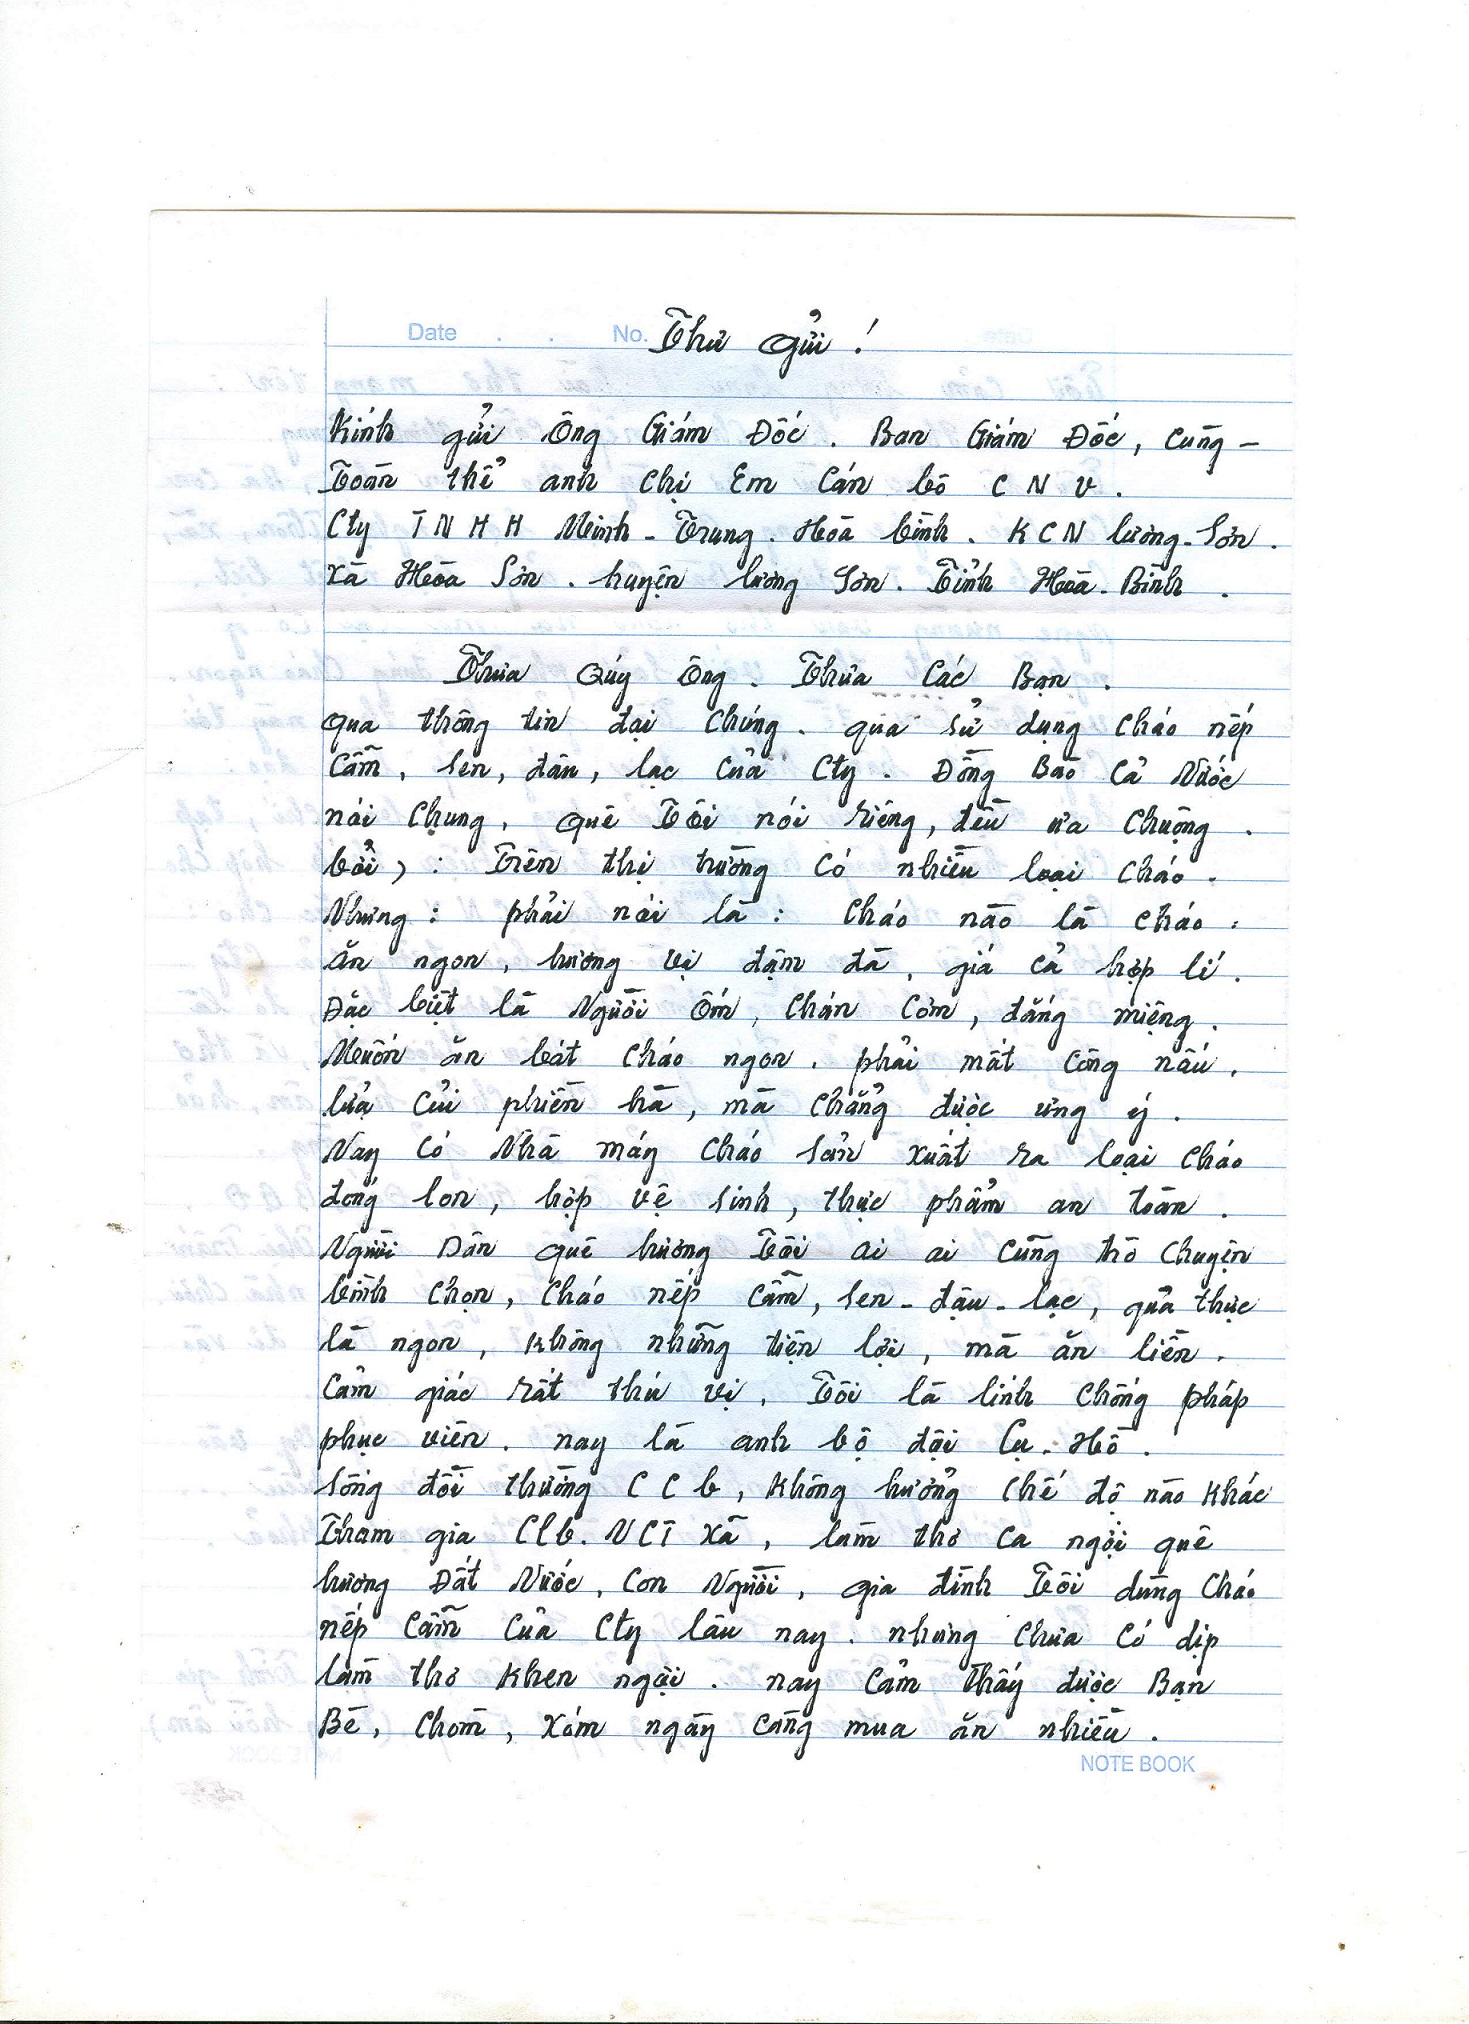 Date . . No. Thư gửi !
Kính gửi Ông Giám Đốc . Ban Giám Đốc, cùng –
Toàn thể anh chị Em cán bộ C N V .
Cty T N H H Minh - Trung . Hòa bình . K C N lương - Sơn .
xã Hòa Sơn . huyện lương Sơn . Tỉnh Hoà - Bình .
Thưa Qúy Ông . Thưa Các Bạn .
qua thông tin đại chúng . qua sử dụng cháo nếp
cẩm, sen, đậu, lạc của Cty . Đồng Bào cả Nước
nói chung, quê Tôi nói riêng, đều ưa chuộng .
bởi > : Trên thị trường có nhiều loại cháo .
Nhưng : phải nói là : cháo nào là cháo :
ăn ngon, hương vị đậm đà, giá cả hợp lí .
Đặc biệt là Người ốm, chán cơm, đắng miệng .
Muốn ăn bát cháo ngon . phải mất công nấu,
lửa củi phiền hà, mà chẳng được ưng ý .
Nay có Nhà máy cháo sản xuất ra loại cháo
đóng lon, hộp vệ sinh, thực phẩm an toàn .
Người Dân quê hương Tôi ai ai cũng trò chuyện
bình chọn, cháo nếp cẩm, sen - đậu - lạc, quả thực
là ngon, không những tiện lợi, mà ăn liền .
Cảm giác rất thú vị . Tôi là lính chống pháp
phục viên . nay là anh bộ đội Cụ - Hồ .
sống đời thường C C b, không hưởng chế độ nào khác
Tham gia Clb . N C T xã, làm thơ ca ngợi quê
hương Đất Nước, con Người, gia đình Tôi dùng cháo
nếp cẩm của Cty lâu nay . nhưng chưa có dịp
làm thơ khen ngợi . nay cảm thấy được Bạn
Bè, chòm, xóm ngày càng mua ăn nhiều .
NOTE BOOK